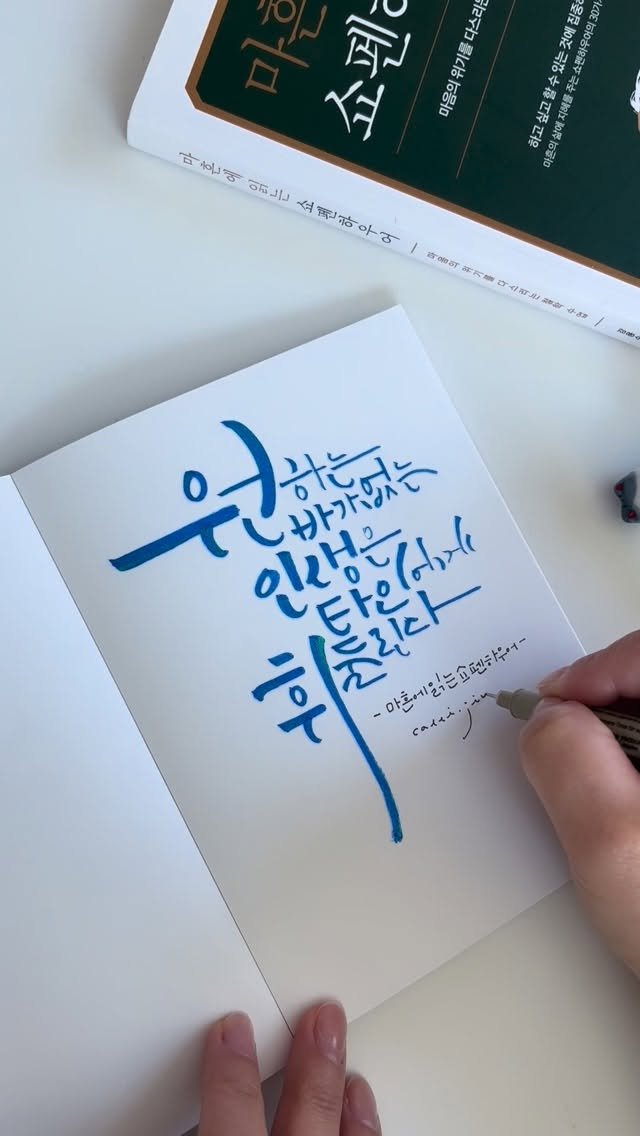 마흔
쇼펜하
마음의 위기를 다스리는
하고 싶고 할 수 있는 것에 집중하
마흔의 삶에 지혜를 주는 쇼펜하우어의 30가
마흔에 읽는 쇼펜하우어 — 마음의 위기를 다스리는 철학 수업 —
원하는
바가 없는
인생은
타인에게
휘둘린다
- 마흔에 읽는 쇼펜하우어 -
calli.jin